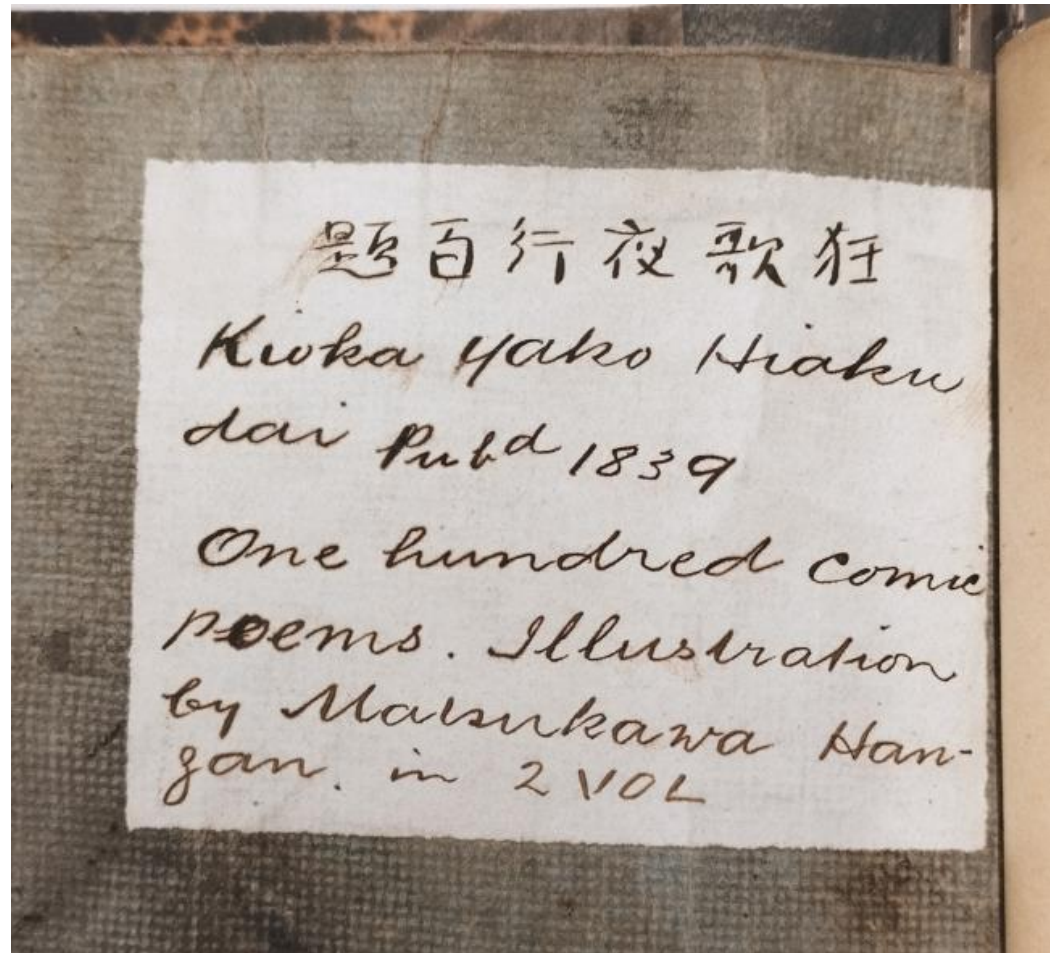 狂歌夜行百題
Kioka Yako Hiaku
dai Pubd 1839
One hundred comic
poems. Illustration
by Matsukawa Han-
zan. in 2 VOL